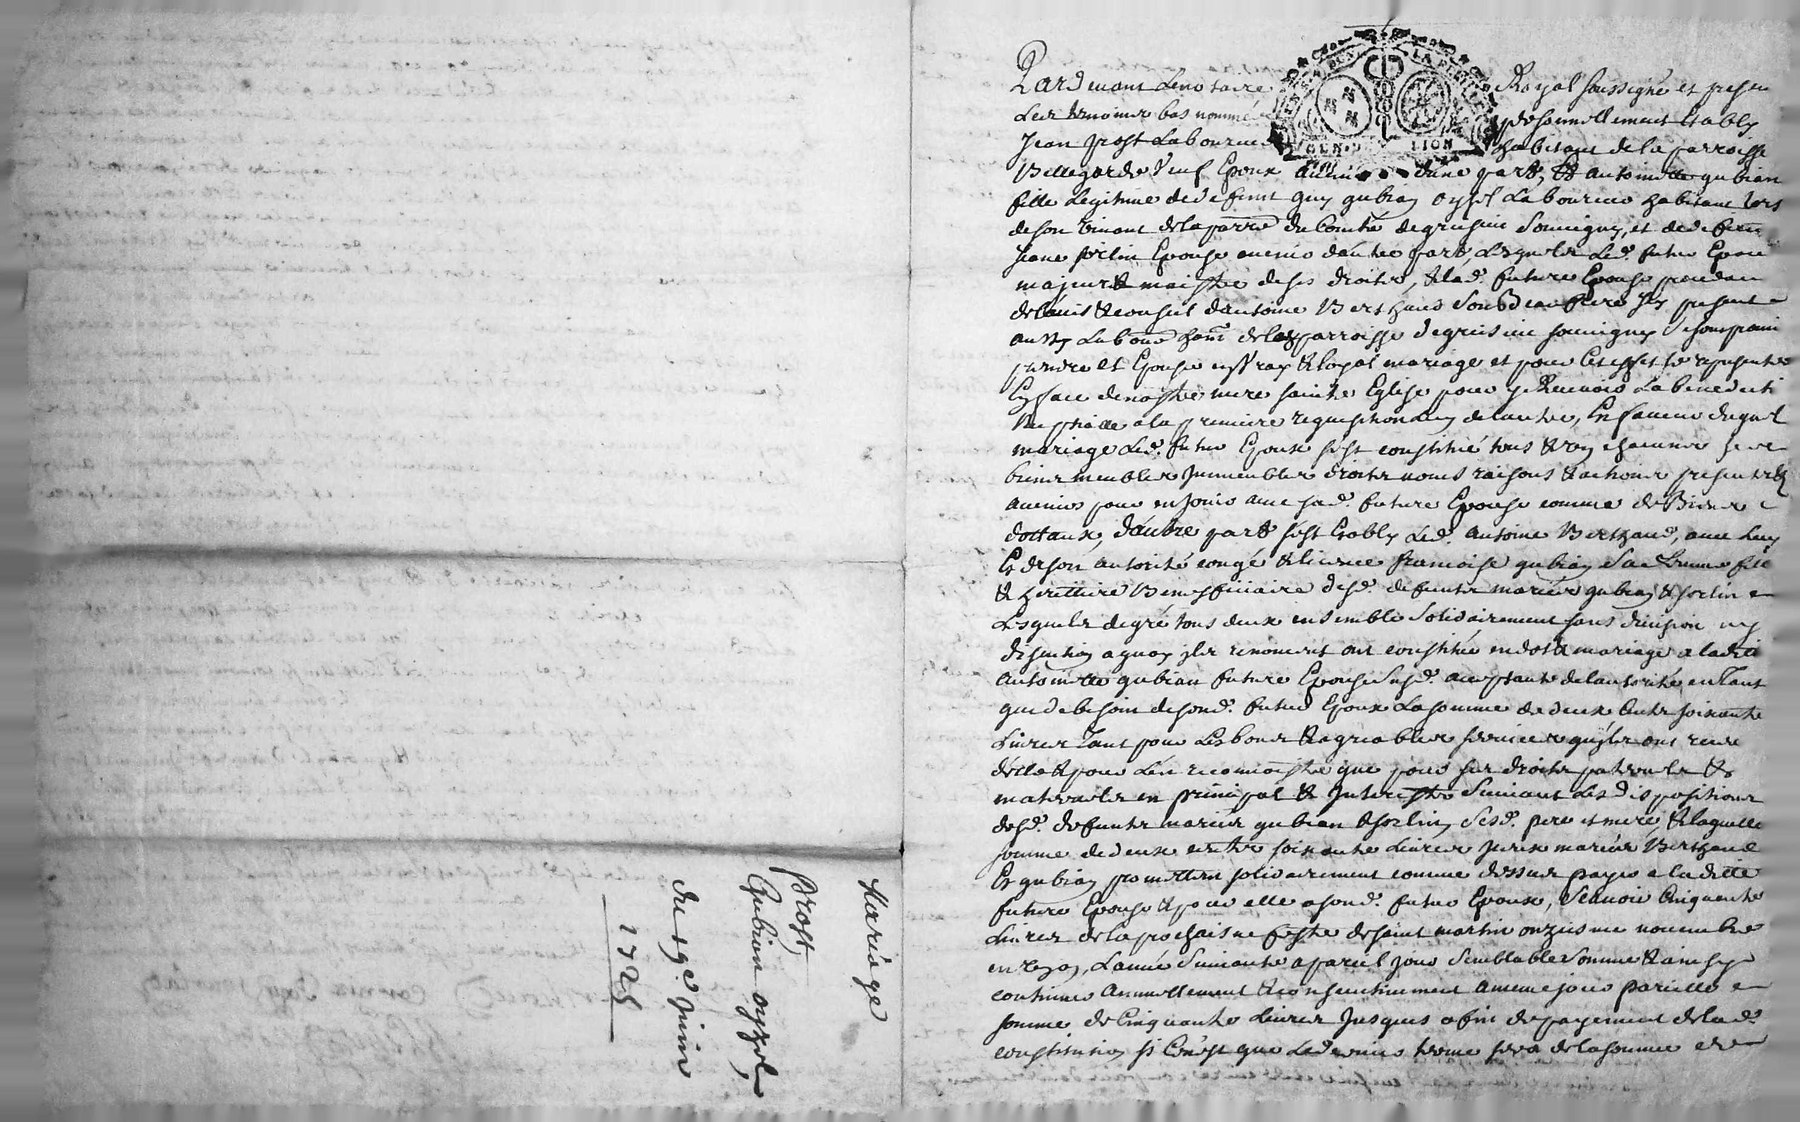 Mariage
Prost,
Gubian oyzel,
du 19e Juin
1725
Pardevant Lenotaire Royal soussigné et presen
Les temoins bas nommé personnellement Estably
Jean prost Laboureur habitant de la parroisse
Bellegarde veuf Epoux advenir dune part, Et Antoinette gubian
fille Legitime de defunt guy gubian oyzel Laboureur habitant Lors
de son vivant de la parre du Comté de grezieu Souvigny, et de defunte
Jeane sorlin Epouse avenir dautre part, Lesquels Led. futur Epoux
majeur & maistre de ses droits, & lad. future Epouse procedant
de lavis & conseil dantoine Berthaud son Beaufrere Icy present
aussy Labour habt de lad parroisse de grezieu souvigny, se sont promis
prendre Et Epouser en vray & loyal mariage et pour Cet effet se representer
En face de nostre mere sainte Eglise pour y Recevoir La benedicti
Nuptiale a la premiere requisition Lun de lautre, En faveur duquel
mariage Led. futur Epoux s'est constitué tous & un chacuns ses
biens meubles Jmmeubles droits noms raisons & actions presents &
avenirs pour en Jouir avec sad. future Epouse comme de Biens
dottaux, dautre part s'est Estably Led. Antoine Berthaud, avec Luy
Et de son autorité congé & licence francoise gubian sa femme fille
& heritiere Beneficiaire desd. defunts mariés gubian & sorlin
Lesquels de gré tous deux ensemble solidairement sans division ny
discution a quoy jls renoncent ont constitué en dot & mariage a ladite
Antoinette gubian future Epouse susd. acceptante de lautorité en Tant
que de besoin de sond. futur Epoux La somme de deux Cents soixante
Livres Tant pour Les bons & agreables services quils ont receu
delle & pour Len recompenser que pour ses droits paternels &
maternels en principal & Interests suivant Les dispositions
desd. defunts mariés gubian & sorlin, sesd. pere et mere, & laquelle
somme de deux cents soixante Livres Iceux mariés Berthaud
Et gubian promettent solidairement comme dessus payer a ladite
future Epouse & pour elle a sond. futur Epoux, scavoir Cinquante
Livres de la prochaine feste de saint martin onzieme novembre
en un an, Lannée suivante a pareil jour semblable somme & ainsy
continuer annuellement & consecutivement a meme jour pareille
somme de Cinquante Livres Jusques a fin de payement de lad.
constitution, si Cen'est que Le dernier terme sera de la somme de